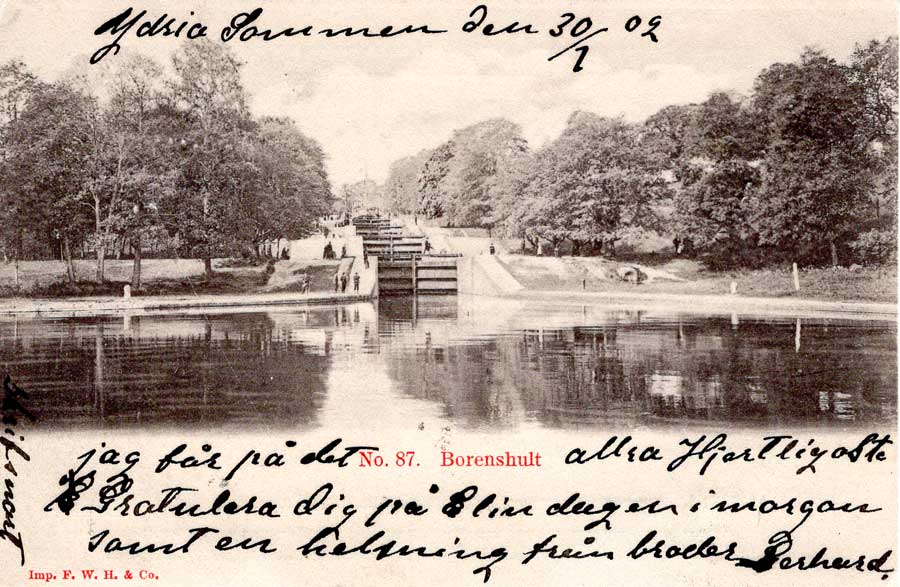 Ydria Sommen den 30/7 09
jag får på det No. 87. Borenshult allra Hjertligaste
Gratulera Dig på Elin dagen i morgon
samt en helsning från broder Gerhard.
Skrif snart
Imp. F. W. H. & Co.